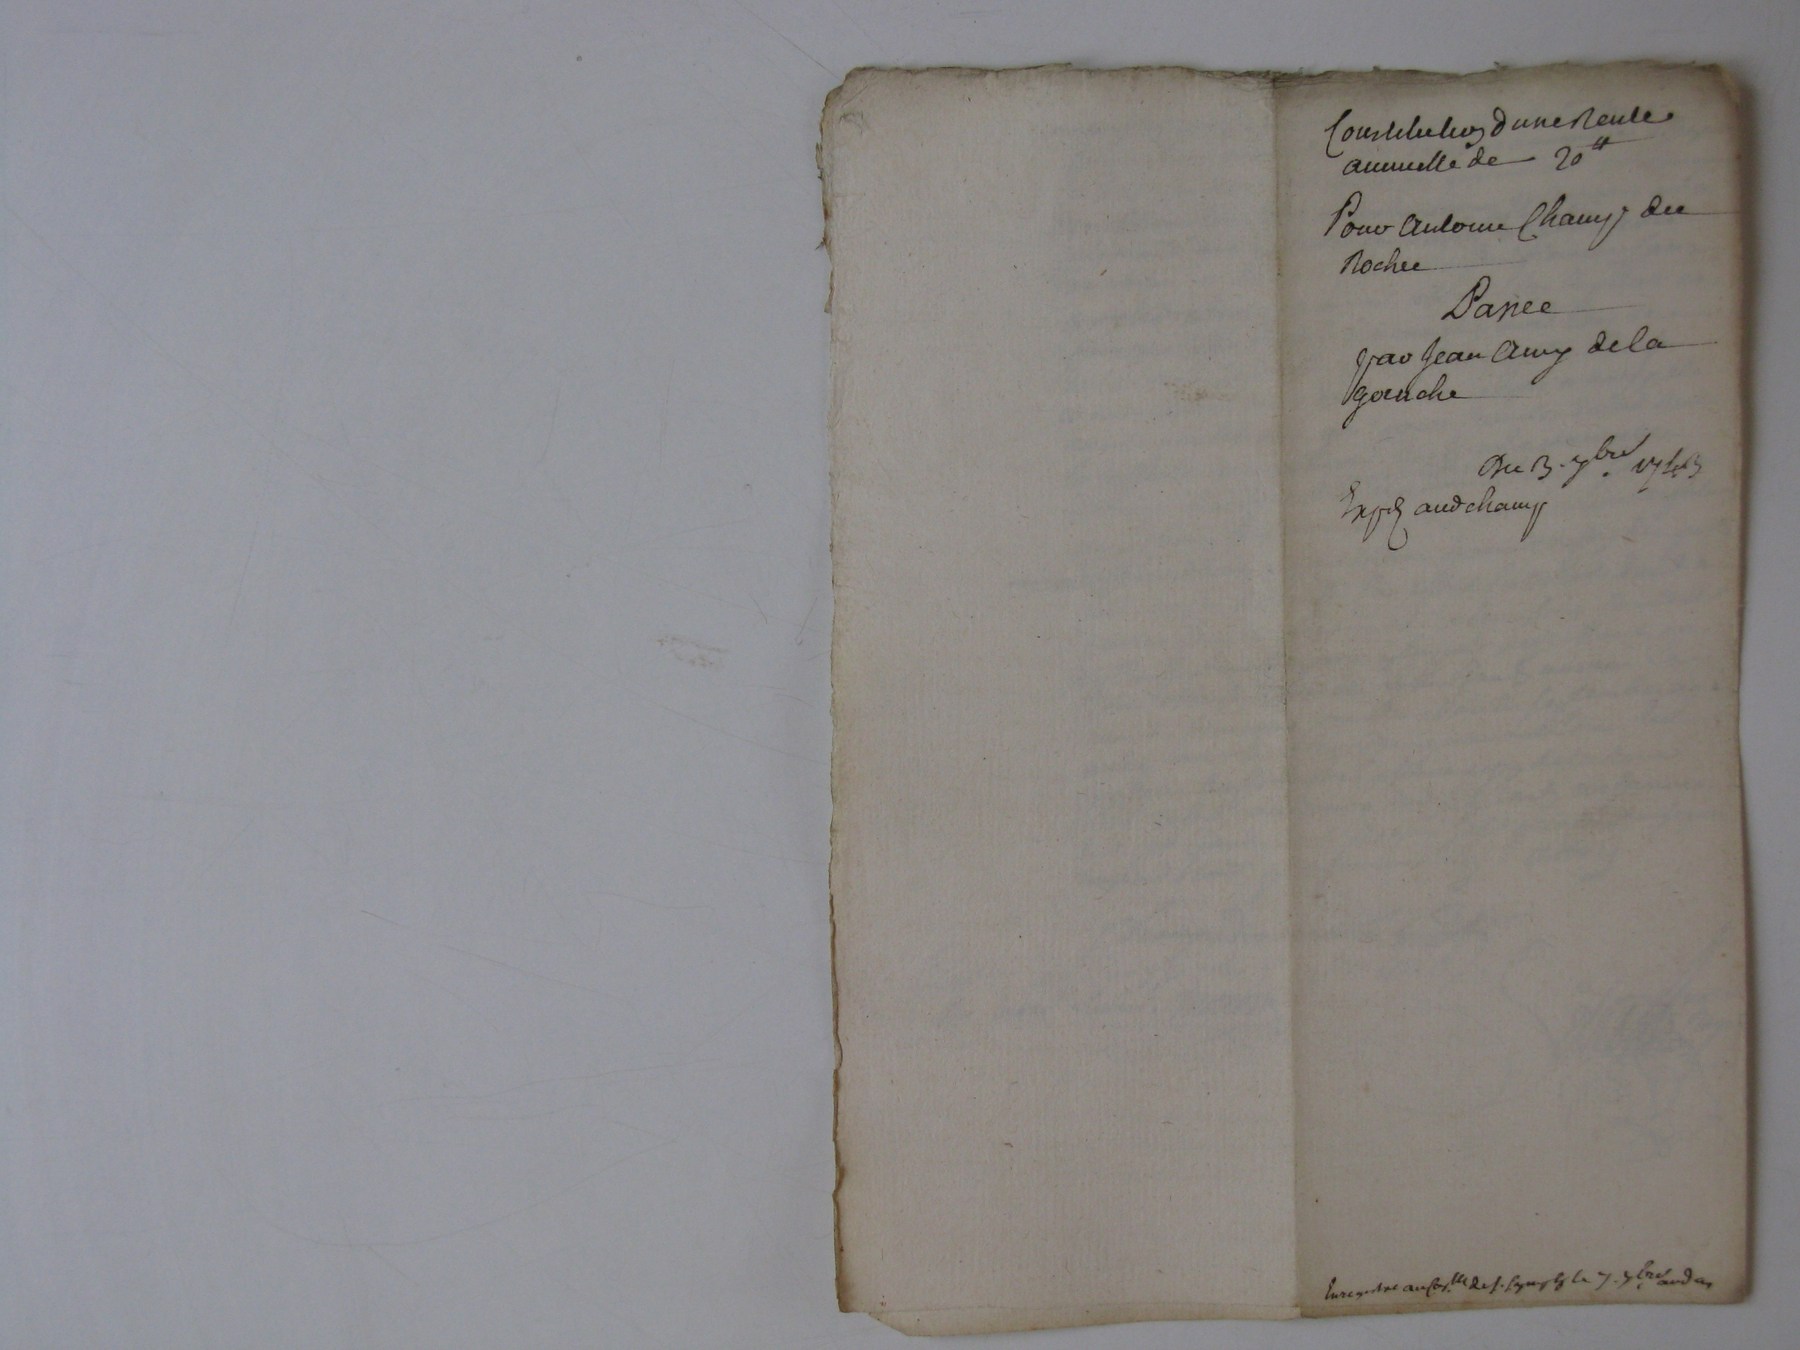 Constitution d'une Rente
annuelle de 20⁺⁺
Pour Antoine Champ du
Rocher
Passée
par Jean Amy de la
gouche
Du 3. 7bre
Expé. audchamp
Enregistré au de st. le 7. 7bre aud an